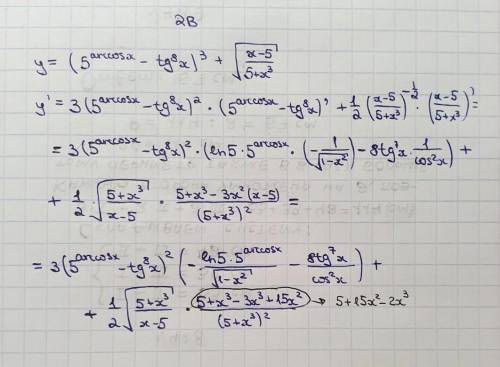 2В
y = (5^arccosx - tg⁸x)³ + √((x-5)/(5+x³))
y' = 3(5^arccosx - tg⁸x)² · (5^arccosx - tg⁸x)' + 1/2 ((x-5)/(5+x³))^(-1/2) · ((x-5)/(5+x³))' =
= 3(5^arccosx - tg⁸x)² · (ln5 · 5^arccosx · (-1/√(1-x²)) - 8tg⁷x · 1/cos²x) +
+ 1/2 · √((5+x³)/(x-5)) · (5+x³-3x²(x-5))/(5+x³)² =
= 3(5^arccosx - tg⁸x)² (- (ln5 · 5^arccosx)/√(1-x²) - 8tg⁷x/cos²x) +
+ 1/2 √((5+x³)/(x-5)) · (5+x³-3x³+15x²)/(5+x³)² → 5+15x²-2x³